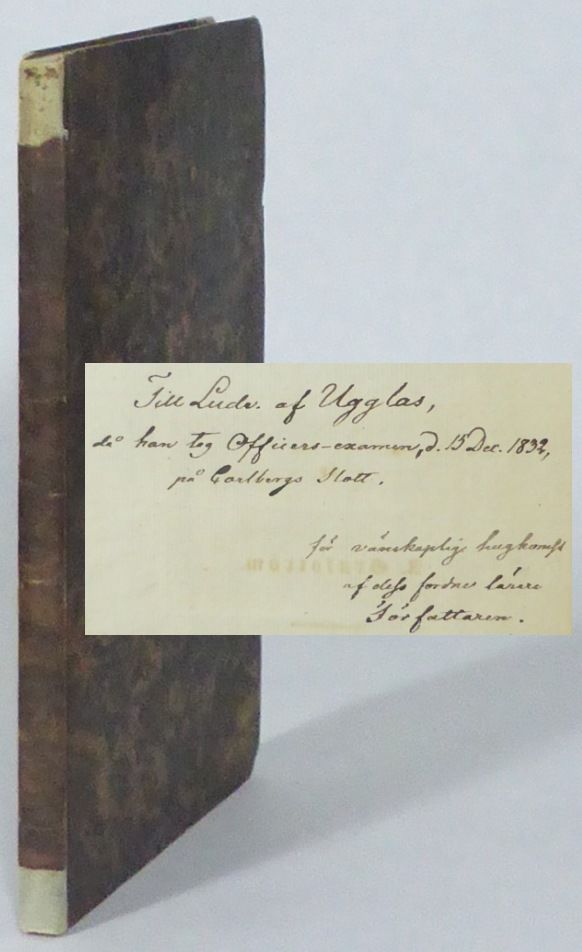 Till Ludv. af Ugglas,
då han tog Officers-examen, d. 15 Dec. 1832,
på Carlbergs Slott.
för vänskaplig hugkomst
af dess fordne lärare
Författaren.